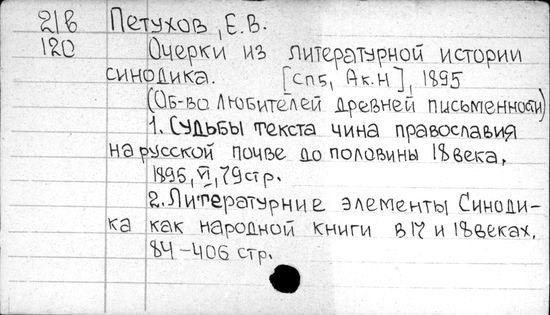 21в Петухов, Е.В.
120 Очерки из литературной истории
синодика. [Спб, Ак.Н], 1895
(Об-во любителей древней письменности)
1. Судьбы текста чина православия
на русской почве до половины 18 века.
1895, VI, 79 стр.
2. Литературние элементы Синоди-
ка как народной книги в 17 и 18 веках.
84-406 стр.